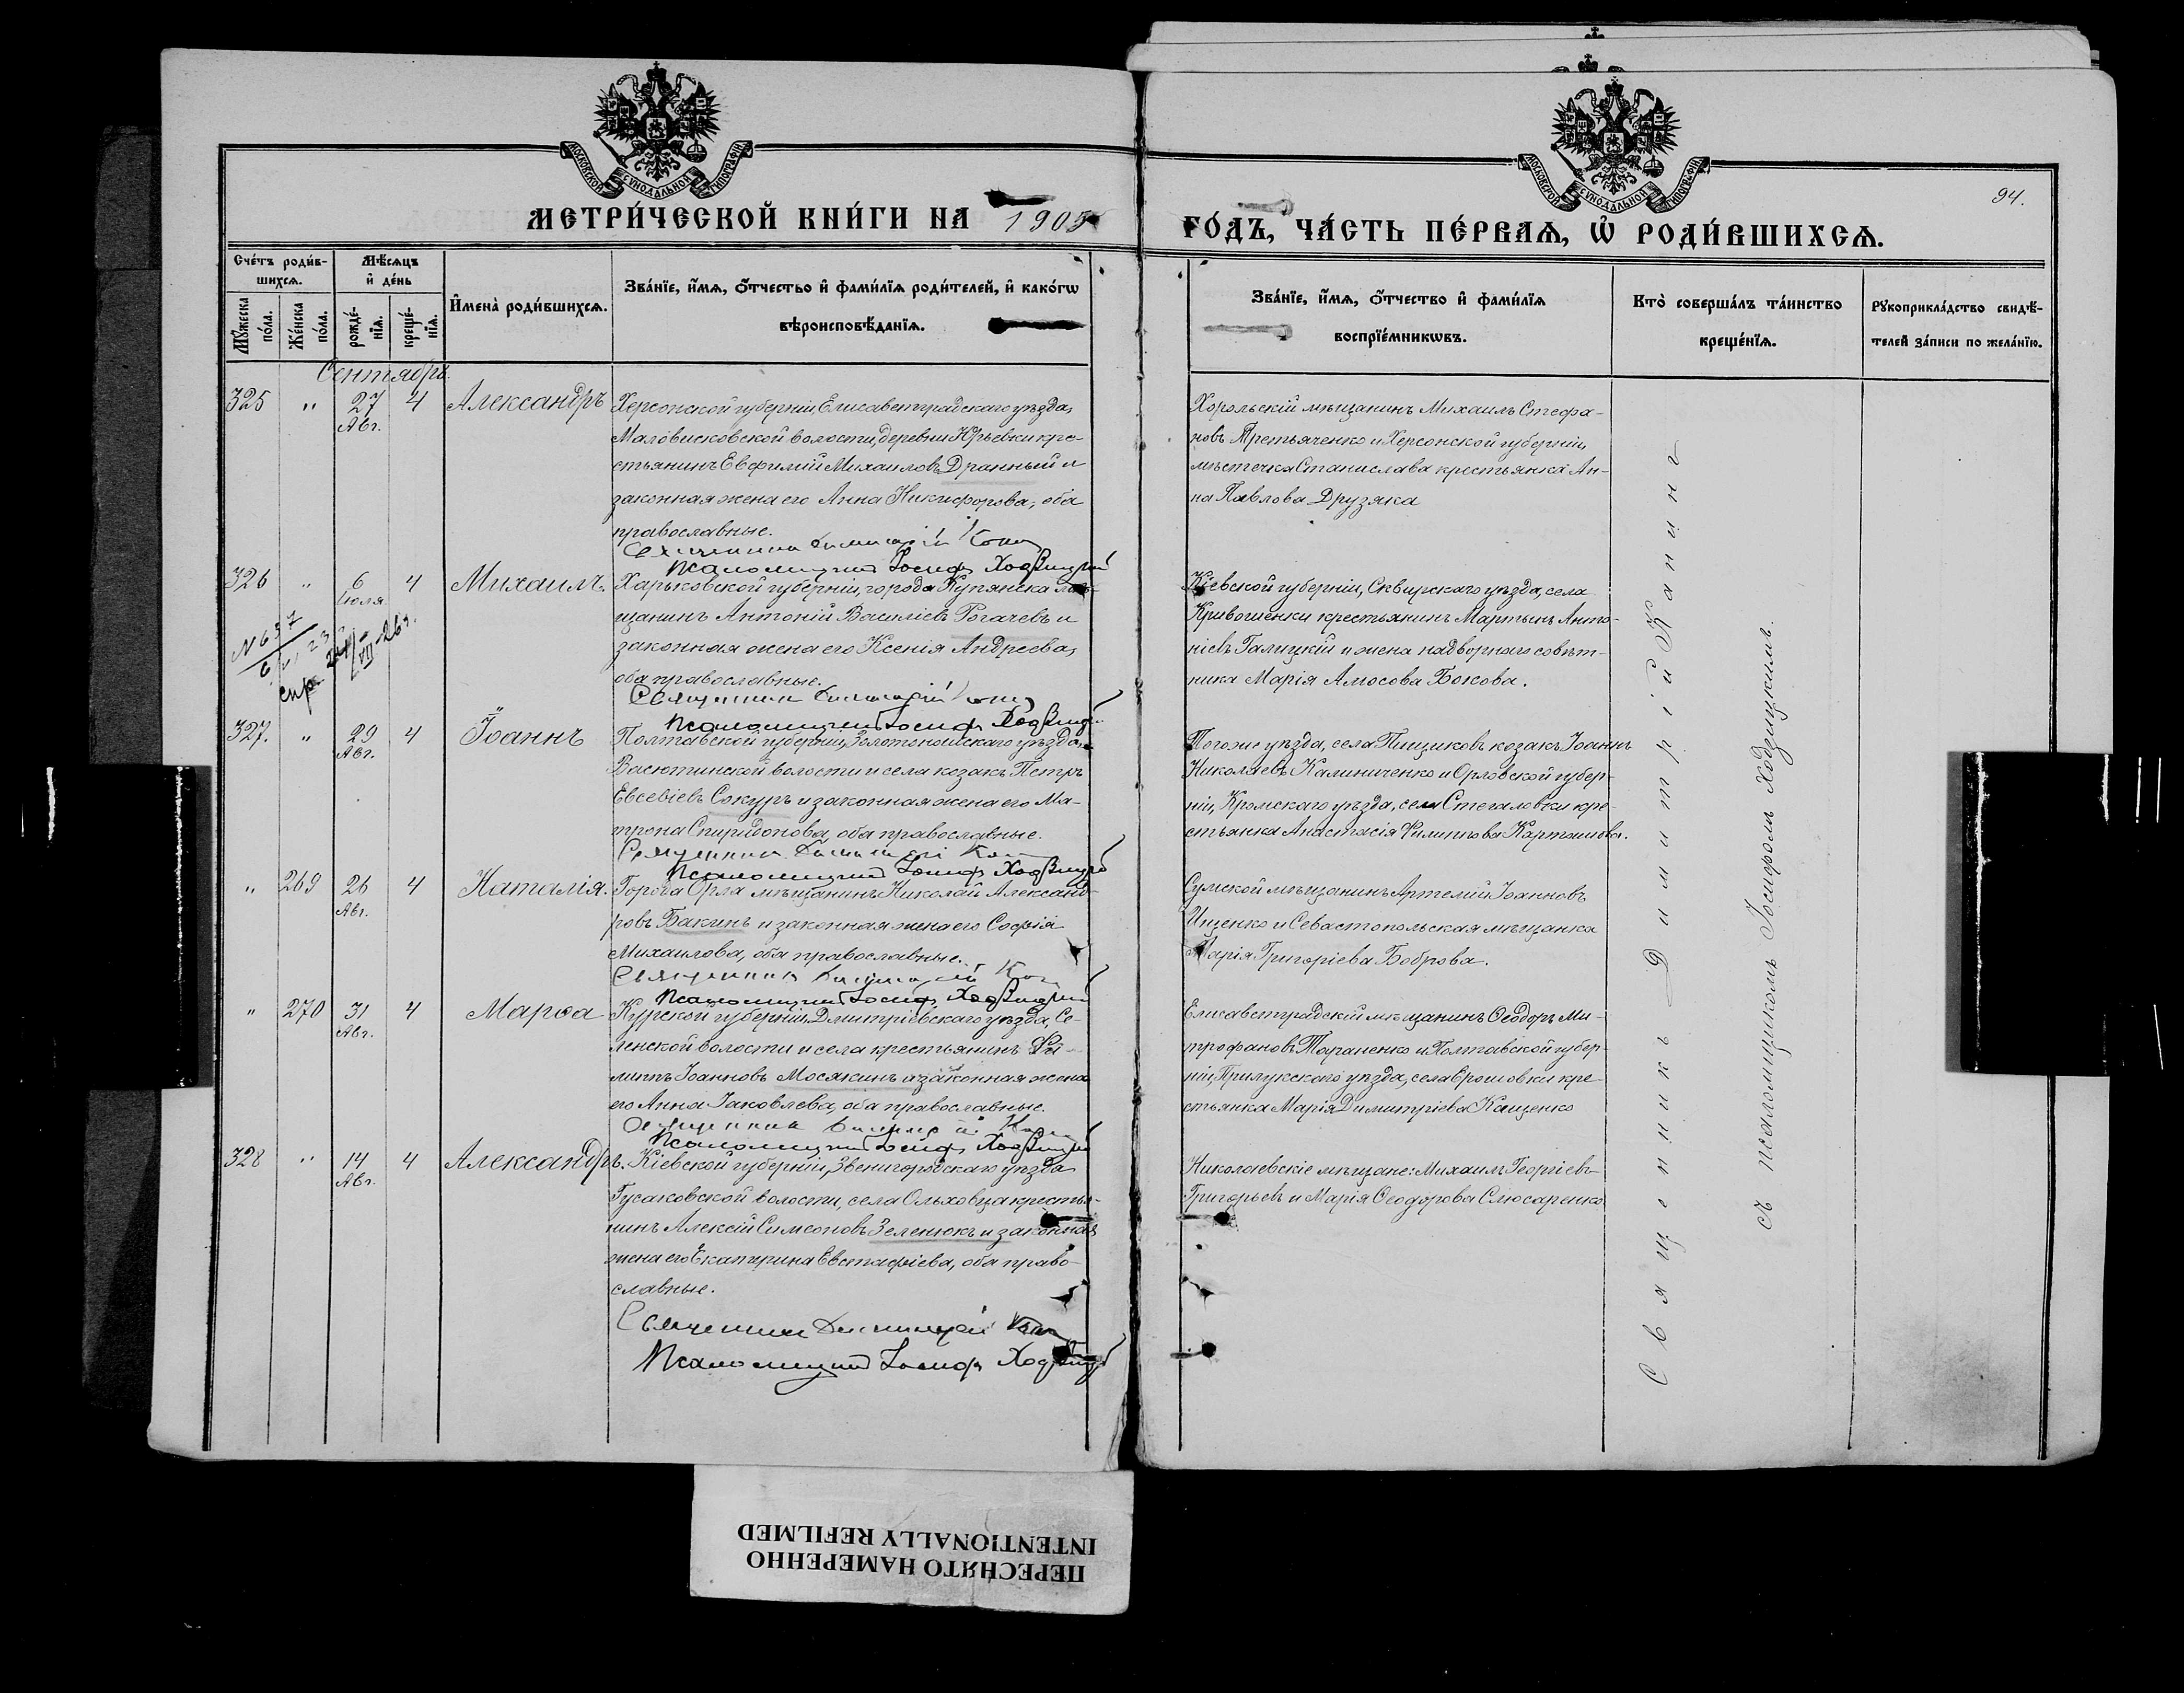 МОСКОВСКОЙ СѴНОДАЛЬНОЙ ТИПОГРАФІИ
МОСКОВСКОЙ СѴНОДАЛЬНОЙ ТИПОГРАФІИ
94.
МЕТРИ́ЧЕСКОЙ КНИ́ГИ НА 1905 ГО́ДЪ, ЧА́СТЬ ПЕ́РВАѦ, Ѡ҆ РОДИ́ВШИХСѦ.
Сче́тъ роди́в-
шихсѧ.
Мѣ́сѧцъ
и҆ де́нь
Мꙋ́жеска по́ла.
Же́нска по́ла.
рожде́-
нїѧ.
креще́-
нїѧ.
И҆мена̀ роди́вшихсѧ.
Зва́нїе, и҆́мѧ, ѻ҆́тчество и҆ фами́лїѧ роди́телей, и҆ како́гѡ
вѣроисповѣ́данїѧ.
Зва́нїе, и҆́мѧ, ѻ҆́тчество и҆ фами́лїѧ
воспрїе́мникѡвъ.
Кто̀ соверша́лъ та́инство
креще́нїѧ.
Рꙋкоприкла́дство свидѣ́-
телей за́писи по жела́нїю.
Сентябрь.
325 " 27 Авг. 4 Александръ
Херсонской губерніи, Елисаветградскаго уѣзда,
Маловисковской волости, деревни Юрьевки кре-
стьянинъ Евфимій Михаиловъ Дранный и
законная жена его Анна Никифорова, оба
православные.
Священникъ Димитрій
Псаломщикъ Іосифъ Ходзицкій
Хорольскій мѣщанинъ Михаилъ Стефа-
новъ Третьяченко и Херсонской губерніи,
мѣстечка Станислава крестьянка Ан-
на Павлова Друзяка
326 " 6 Іюля 4 Михаилъ.
N 637
Харьковской губерніи, города Купянска мѣ-
щанинъ Антоній Василіевъ Рогачевъ и
законная жена его Ксенія Андреева,
оба православные.
Священникъ Димитрій
Псаломщикъ Іосифъ Ходзицкій
Кіевской губерніи, Сквирскаго уѣзда, села
Кривошенки крестьянинъ Мартынъ Анто-
ніевъ Галицкій и жена надворнаго совѣт-
ника Марія Амосова Божова.
327. " 29 Авг. 4 Іоаннъ
Полтавской губерніи, Золотоношскаго уѣзда,
Васютинской волости и села козакъ Петръ
Евсевіевъ Сокуръ и законная жена его Ма-
трона Спиридонова, оба православные.
Священникъ Димитрій
Псаломщикъ Іосифъ Ходзицкій
Тогоже уѣзда, села Пищиковъ козакъ Іоаннъ
Николаевъ Калиниченко и Орловской губер-
ніи, Кромскаго уѣзда, села Стегаловки кре-
стьянка Анастасія Филиппова Карташова.
" 269 26 Авг. 4 Наталія.
Города Орла мѣщанинъ Николай Александ-
ровъ Бакинъ и законная жена его Софія
Михаилова, оба православные.
Священникъ Димитрій
Псаломщикъ Іосифъ Ходзицкій
Сумской мѣщанинъ Артемій Іоанновъ
Ищенко и Севастопольская мѣщанка
Марія Григоріева Боброва.
" 270 31 Авг. 4 Марѳа
Курской губерніи, Дмитріевскаго уѣзда, Се-
ленской волости и села крестьянинъ Фи-
липпъ Іоанновъ Мосякинъ и законная жена
его Анна Іаковлева, оба православные.
Священникъ Димитрій
Псаломщикъ Іосифъ Ходзицкій
Елисаветградскій мѣщанинъ Ѳеодоръ Ми-
трофановъ Тараненко и Полтавской губер-
ніи, Прилукскаго уѣзда, села Ярошовки кре-
стьянка Марія Димитріева Кащенко
328 " 14 Авг. 4 Александръ.
Кіевской губерніи, Звенигородскаго уѣзда
Гусаковской волости, села Ольховца крестья-
нинъ Алексій Симеоновъ Зеленюкъ и законная
жена его Екатерина Евстафіева, оба право-
славные.
Священникъ Димитрій
Псаломщикъ Іосифъ Ходзицкій
Николаевскіе мѣщане: Михаилъ Георгіевъ
Григорьевъ и Марія Ѳеодорова Слюсаренко
Священникъ Димитрій
съ псаломщикомъ Іосифомъ Ходзицкимъ.
ПЕРЕСНЯТО НАМЕРЕННО
INTENTIONALLY REFILMED